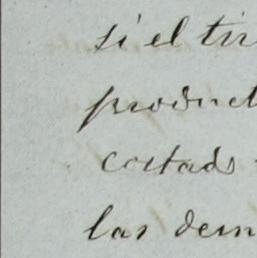 si el tir
product
costads
las dem